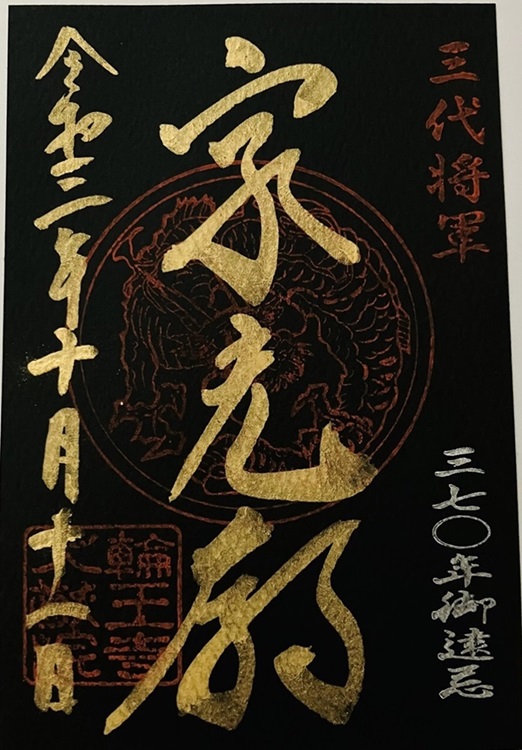 三代将軍
三七〇年御遠忌
家光廟
令和三年十月十一日
輪王寺
大猷院